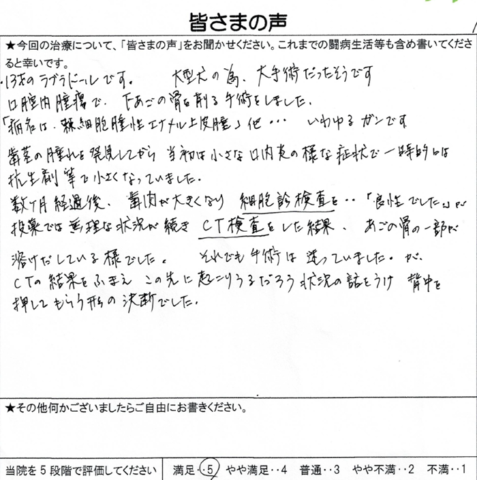 皆さまの声
★今回の治療について、「皆さまの声」をお聞かせください。これまでの闘病生活等も含め書いてくださ
ると幸いです。
・13才のラブラドールです。 大型犬の為、大手術だったそうです
口腔内腫瘍で、下あごの骨を削る手術をしました。
「病名は、棘細胞腫性エナメル上皮腫」他… いわゆるガンです
歯茎の腫れを発見してから 当初は小さな口内炎の様な症状で一時的には
抗生剤等で小さくなっていました。
数ヶ月経過後、歯肉が大きくなり 細胞診検査を‥「良性でした」が
投薬では無理な状況が続き CT検査をした結果、あごの骨の一部が
溶けだしている様でした。 それでも手術は迷っていました。が、
CTの結果をふまえ この先に起こりうるだろう状況の話をうけ 背中を
押してもらう形の決断でした。
★その他何かございましたらご自由にお書きください。
当院を5段階で評価してください 満足‥5 やや満足‥4 普通‥3 やや不満‥2 不満‥1